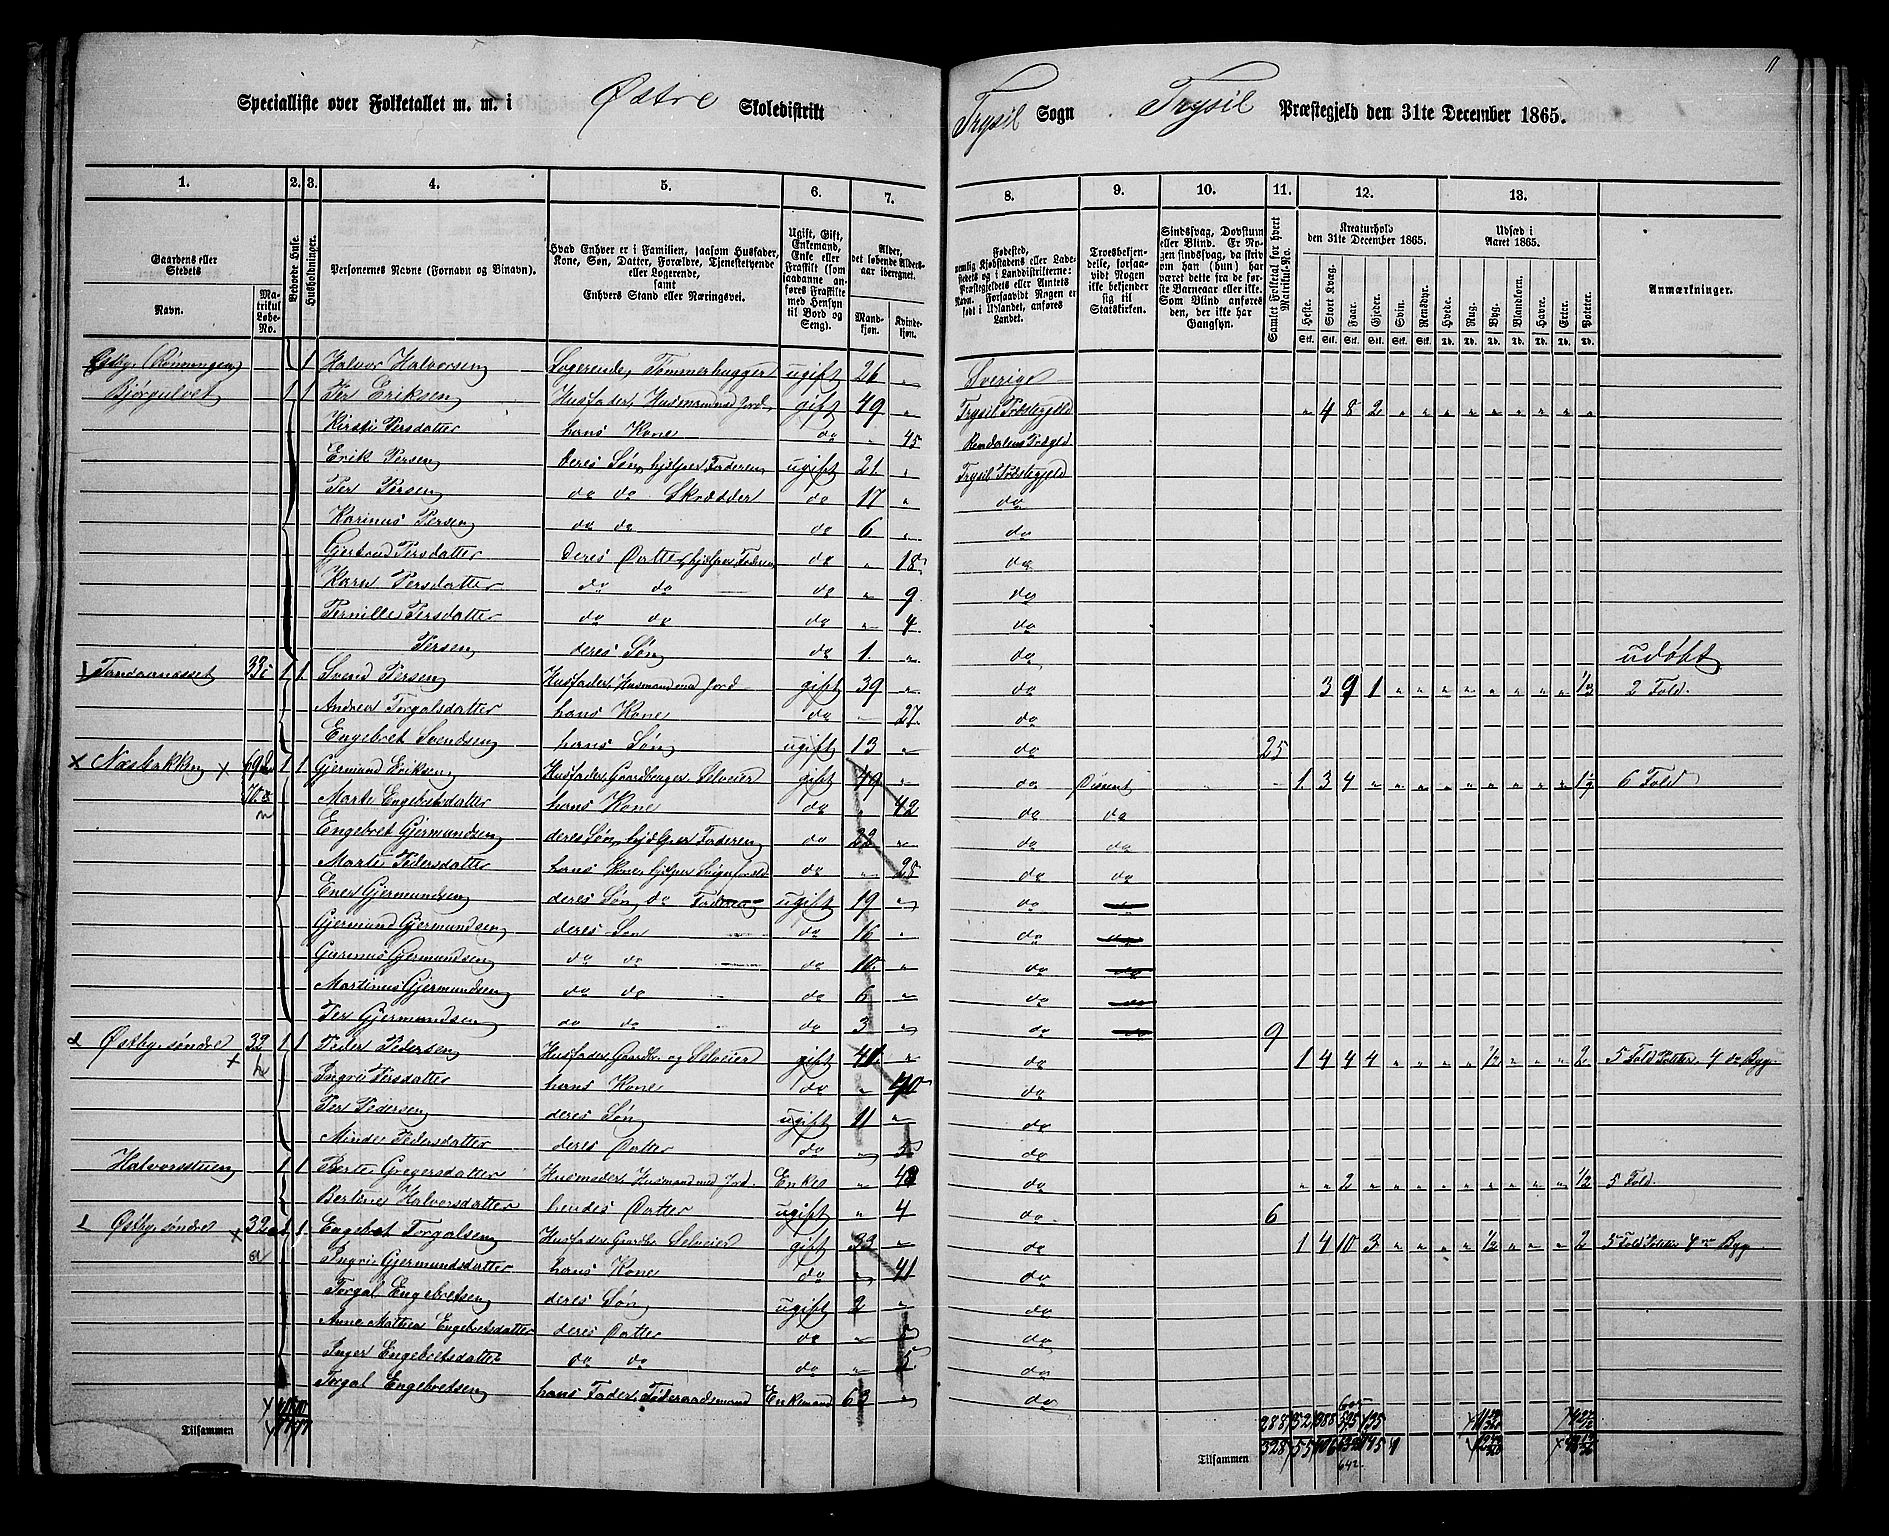 11
Specialliste over Folketallet m. m. i Østre Skoledistrikt Trysil Sogn Trysil Præstegjeld den 31te December 1865.
1. 2. 3. 4. 5. 6. 7. 8. 9. 10. 11. 12. 13.
Gaardens eller Stedets
Navn.
Matrikul Løbe-No.
Beboede Huse.
Husholdninger.
Personernes Navne (Fornavn og Binavn).
Hvad Enhver er i Familien, saasom Husfader, Kone, Søn, Datter, Forældre, Tjenestetyende eller Logerende, samt Enhvers Stand eller Næringsvei.
Ugift, Gift, Enkemand, Enke eller Fraskilt (som saadanne anføres Fraskilte med Hensyn til Bord og Seng).
Alder, det løbende Alders-aar iberegnet.
Mandkjøn.
Kvindekjøn.
Fødested,
Troesbekjendelse, forsaavidt Nogen ikke bekjender sig til Statskirken.
Sindssvag, Døvstum eller Blind. Er Nogen sindssvag, da skriv om han (hun) har været dette fra de første Barneaar eller ikke. Som Blind anføres den, der ikke har Gangsyn.
Samlet Folketal for hvert Matrikul-No.
Kreaturhold den 31te December 1865.
Heste. Stort Kvæg. Faar. Gjeder. Svin. Rensdyr.
Udsæd i Aaret 1865.
Hvede. Rug. Byg. Blandkorn. Havre. Erter. Poteter.
Anmærkninger.
1 Halvor Halvorsen Logerende, Tømmerhugger ugift 26 " Sverige
Bjørgulvet 1 1 Per Eriksen Husfader, Husmand med Jord gift 49 " Trysil Præstegjeld " 4 8 2 " " " " " " " " "
Kirsti Persdatter hans Kone do " 45 Rendalens
Erik Persen deres Søn, hjelper Faderen ugift 21 " Trysil Præstegjeld
Per Persen do do Skrædder do 17 " do
Karinus Persen do do do 6 " do
Gjertrud Persdatter deres Datter, hjelper Faderen do " 18 do
Kari Persdatter do do do " 9 do
Pernille Persdatter do do do " 4 do
Persen deres Søn do 1 " do udøbt
Tandaanesset 33 1 1 Svend Persen Husfader, Husmand med Jord gift 39 " do 3 9 1 " " " " " " " " 1/2 2 Fold.
Andrea Torgalsdatter hans Kone do " 27 do
Engebret Svendsen hans Søn ugift 13 " do 25
Næsbakken 69 1 1 Gjermund Eriksen Husfader, Gaardbruger Selveier gift 49 " do Disent 1 3 4 " " " " " " " " " 1/2 6 Fold
70 Marte Engebretsdatter hans Kone do " 42 do do
Engebret Gjermundsen deres Søn, hjelper Faderen do 22 " do do
Marte Pedersdatter hans Kone, hjelper do " 25 do do
Ener Gjermundsen deres Søn do Faderen ugift 19 " do do
Gjermund Gjermundsen deres Søn do 16 " do do
Garenus Gjermundsen do do do 10 " do do
Martinus Gjermundsen do do do 6 " do do
Per Gjermundsen do do do 3 " do do 9
Østby søndre 32 1 1 Peder Pedersen Husfader, Gaardbr. og Selveier gift 41 " do 1 4 4 4 " " " " 1/2 " " " 2 5 Fold Poteter 4 do Byg
Ingri Persdatter hans Kone do " 40 do
Per Pedersen deres Søn ugift 11 " do
Minde Pedersdatter deres Datter do " 5 do
Halvorsstuen 1 1 Berte Gregersdatter Husmoder, Husmand med Jord. Enke " 43 do " " 2 " " " " " " " " " 1/2 5 Fold.
Berline Halvorsdatter hendes Datter ugift " 4 do 6
Østby søndre 32 1 1 Engebret Torgalsen Husfader, Gaardbr Selveier gift 33 " do 1 4 10 3 " " " " 1/2 " " " 2 5 Fold Poteter 4 do Byg
Ingri Gjermundsdatter hans Kone do " 41 do
Torgal Engebretsen deres Søn ugift 2 " do
Anne Mathea Engebretsdatter deres Datter do " do
Inger Engebretsdatter do do do " 5 do
Torgal Engebretsen hans Fader, Føderaadsmand Enkemand 63 " do
Tilsammen
Tilsammen 328
642